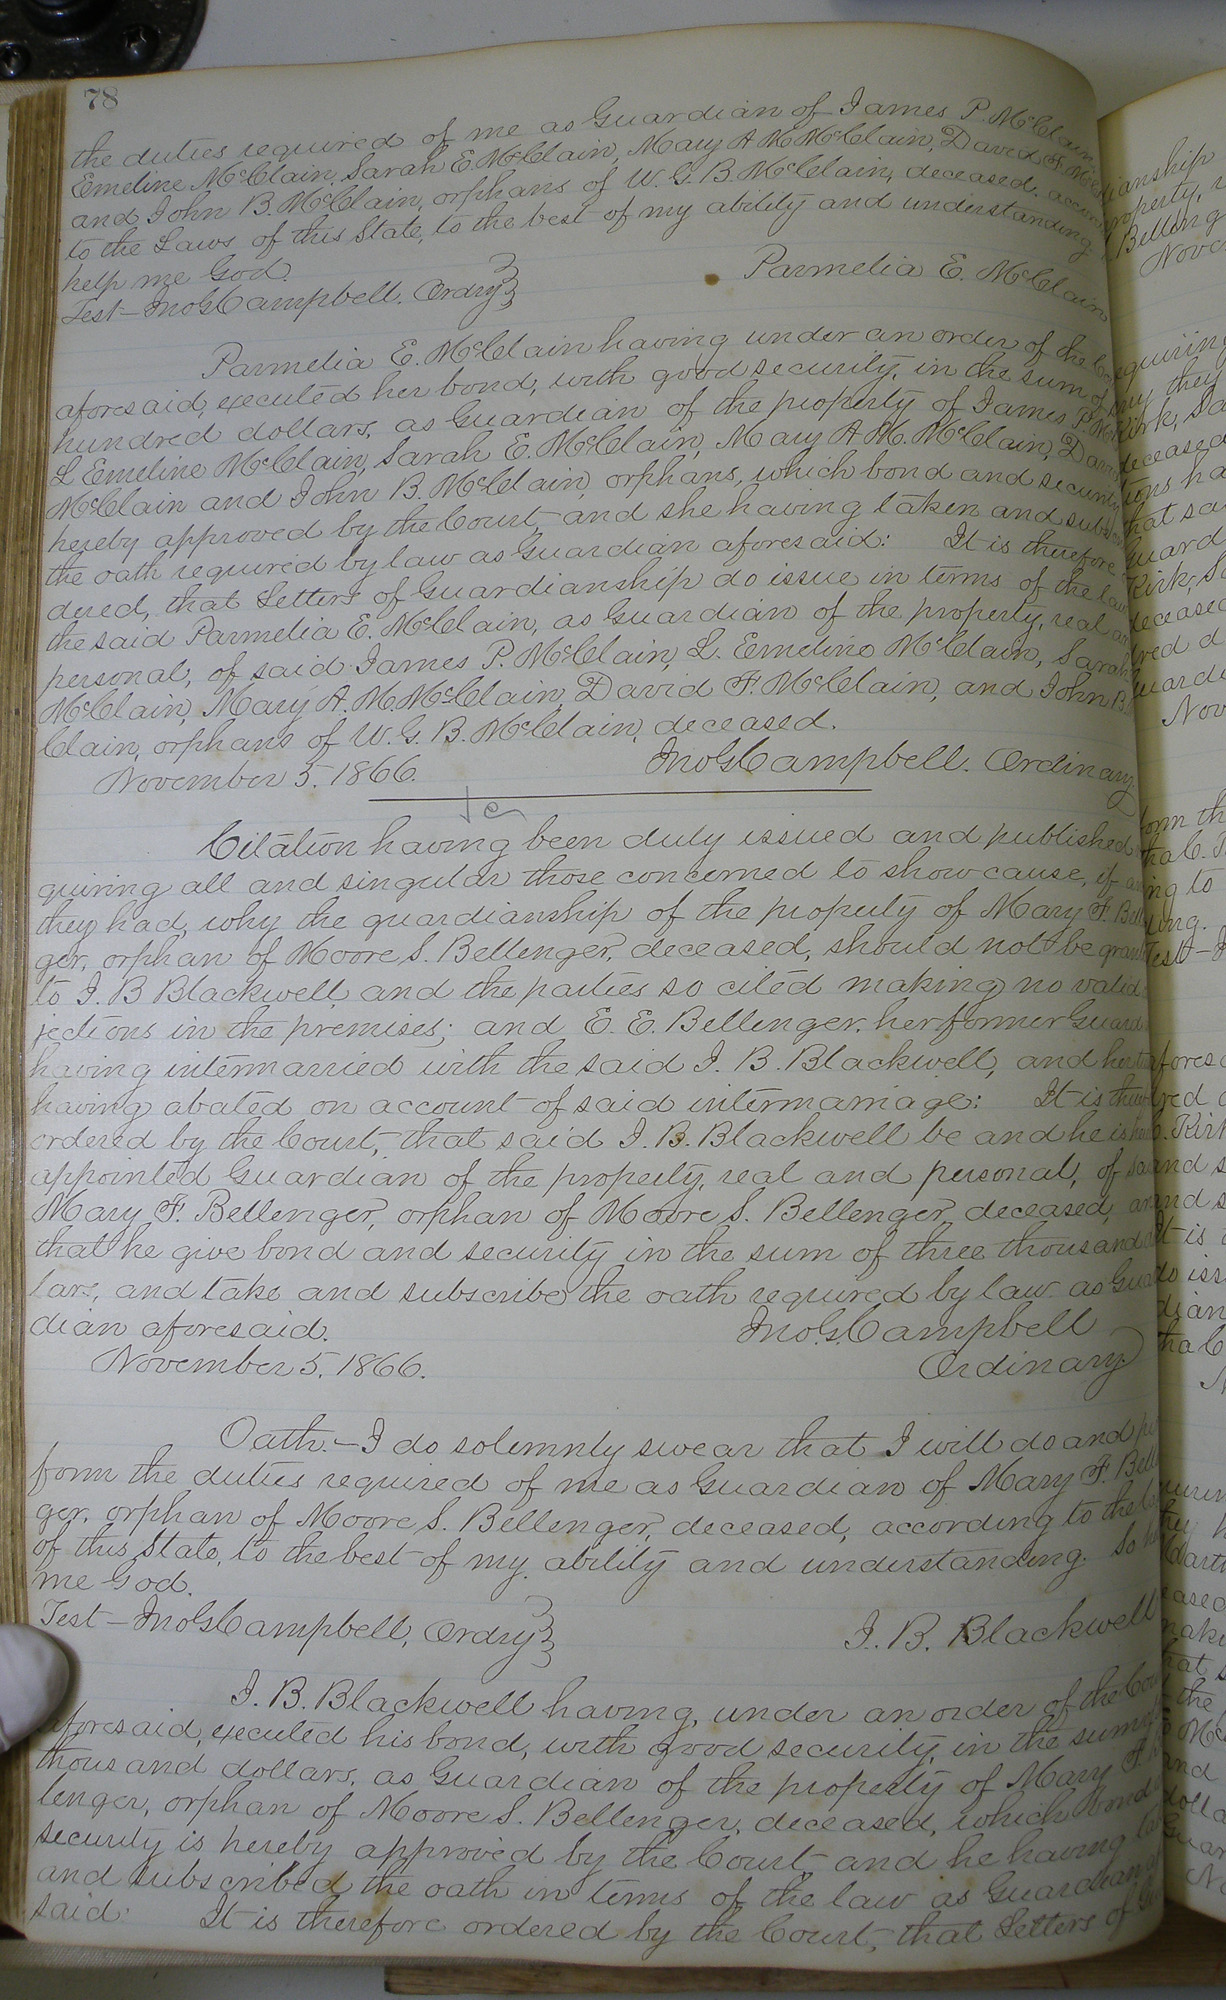 78
the duties required of me as Guardian of James P. McClain
Emeline McClain, Sarah E. McClain, Mary A M McClain, David F. McClain
and John B. McClain, orphans of W. G. B. McClain, deceased,
to the Laws of this State, to the best of my ability and understanding
help me God.
Parmelia E. McClain
Test - Jno G Campbell. Ordry
Parmelia E. McClain having under an order of the
aforesaid, executed her bond, with good security, in the sum of
hundred dollars, as Guardian of the property of James P. Mc
L Emeline McClain, Sarah E. McClain, Mary A M. McClain, David
McClain and John B. McClain, orphans, which bond and security
hereby approved by the Court, and she having taken and subs
the oath required by law as Guardian aforesaid: It is therefore
dered, that Letters of Guardianship do issue in terms of the law
the said Parmelia E. McClain, as Guardian of the property, real
personal, of said James P. McClain, L. Emeline McClain, Sarah
McClain, Mary A. M. McClain, David F. McClain, and John B
Clain, orphans of W. G. B. McClain, deceased.
November 5. 1866. Jno G Campbell. Ordinary
Citation having been duly issued and published
quiring all and singular those concerned to show cause, if
they had, why the guardianship of the property of Mary F. Bell
ger, orphan of Moore S. Bellenger, deceased, should not be
to J. B Blackwell, and the parties so cited making no valid
jections in the premises; and E. E. Bellenger, her former Guard
having intermarried with the said J. B. Blackwell, and her
having abated on account of said intermarriage: It is
ordered by the Court, that said J. B. Blackwell be and he is
appointed Guardian of the property, real and personal, of
Mary F. Bellenger, orphan of Moore S. Bellenger, deceased,
that he give bond and security in the sum of three thousand
lars, and take and subscribe the oath required by law as Gua
dian aforesaid. Jno G. Campbell
November 5. 1866. Ordinary
Oath. - I do solemnly swear that I will do and
form the duties required of me as Guardian of Mary F. Belle
ger, orphan of Moore S. Bellenger, deceased, according to the
of this State, to the best of my ability and understanding. So
me God.
Test - Jno G Campbell, Ordry
J. B. Blackwell
J. B. Blackwell having, under an order of the Cou
aforesaid, executed his bond, with good security, in the sum
thousand dollars, as Guardian of the property of Mary F.
lenger, orphan of Moore S. Bellenger, deceased, which bond
security is hereby approved by the Court, and he having
and subscribed the oath in terms of the law as Guardian
said: It is therefore ordered by the Court, that Letters of